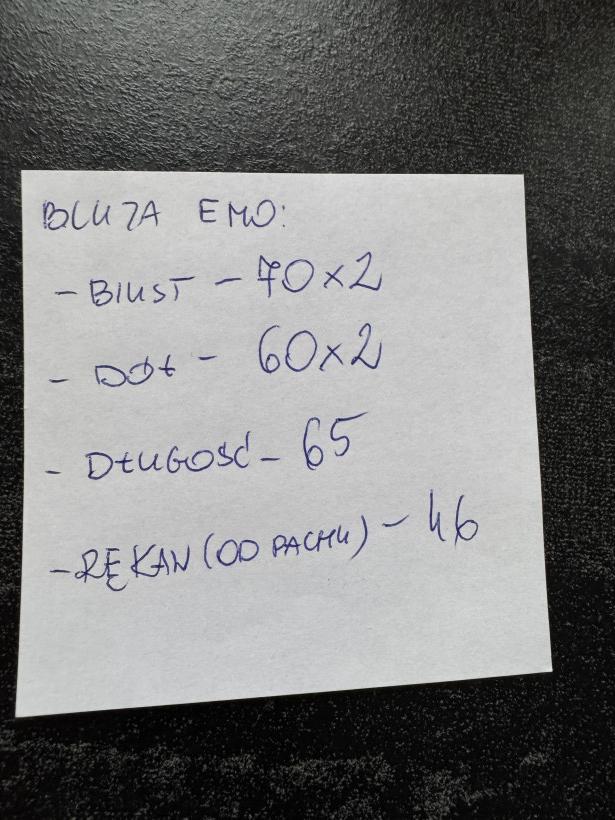 BLUZA EMO:
- BIUST - 70x2
- DÓŁ - 60x2
- DŁUGOŚĆ - 65
- RĘKAW (OD PACHY) - 46